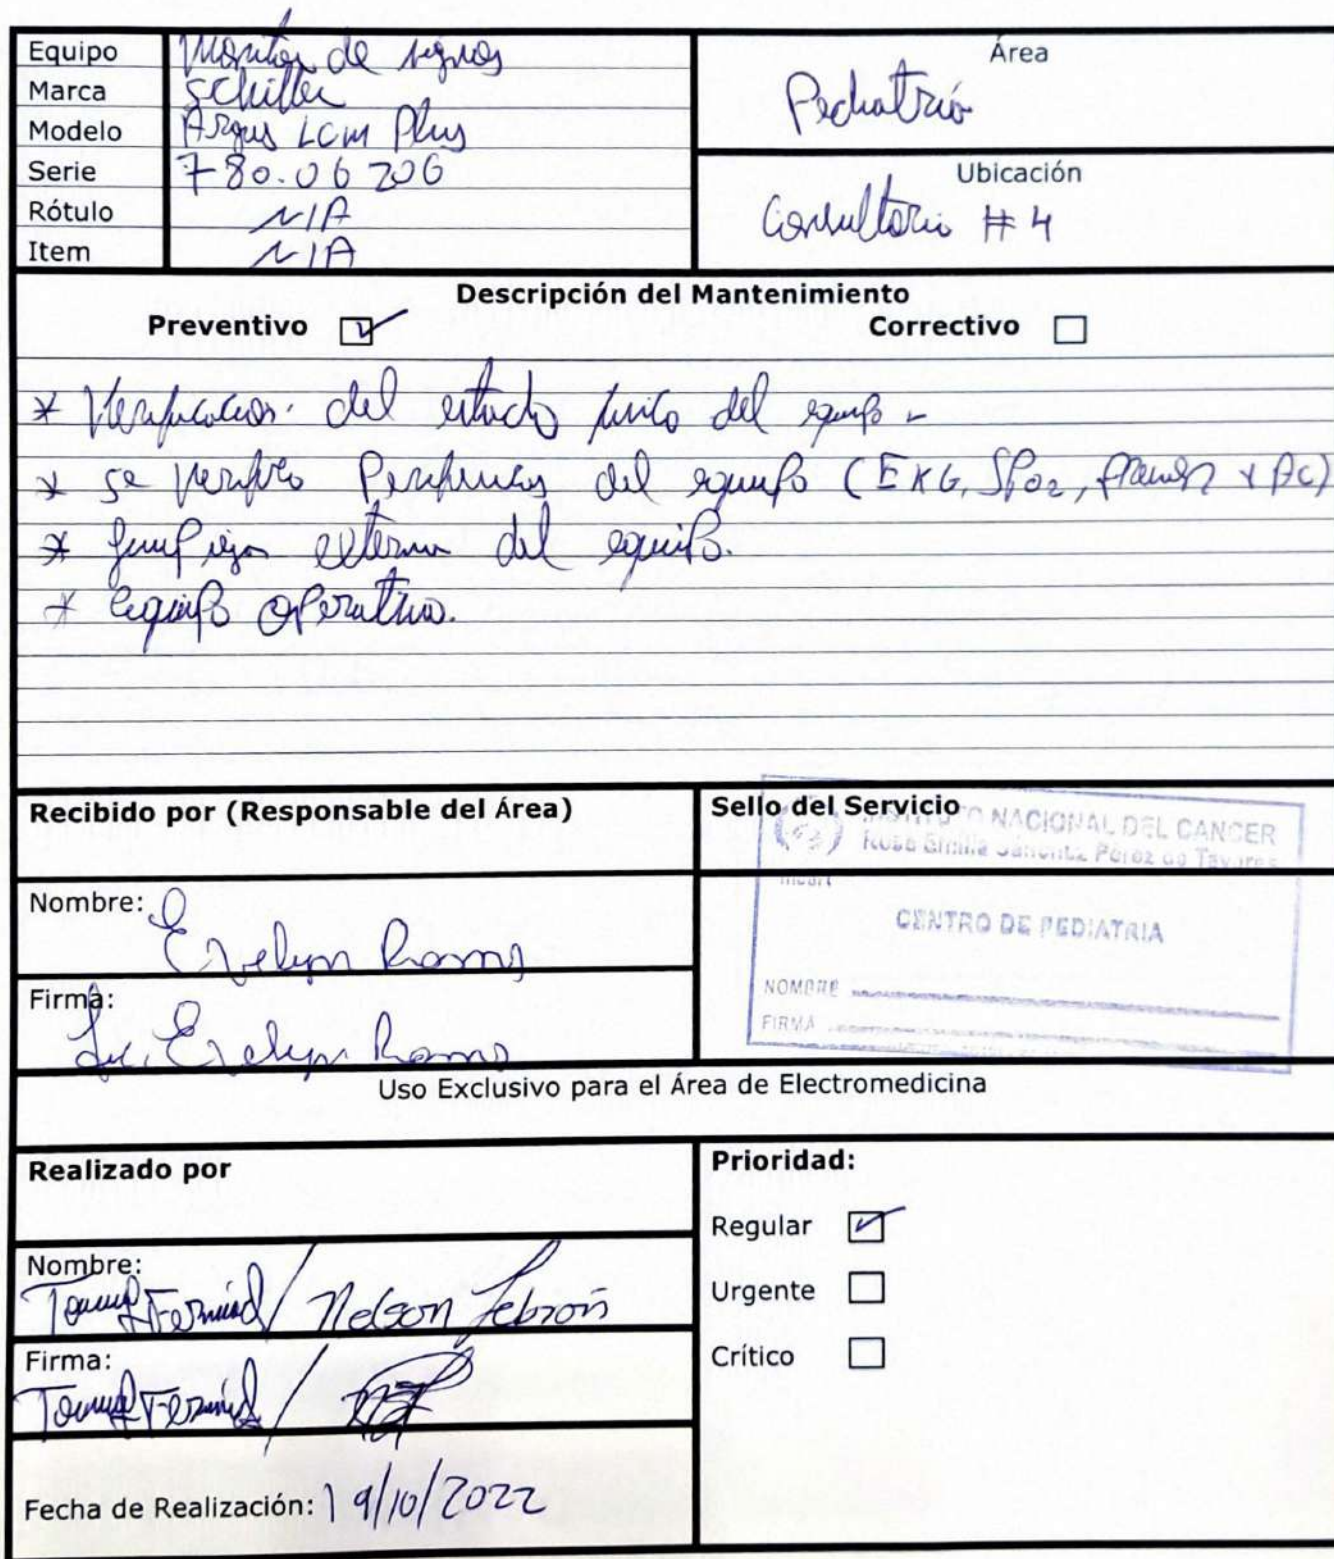 Equipo Monitor de signos
Marca Schiller
Modelo Argus LCM Plus
Serie 780.06206
Rótulo N/A
Item N/A
Área
Pediatría
Ubicación
Consultorio #4
Descripción del Mantenimiento
Preventivo Correctivo
* Verificacion del estado fisico del equipo -
* se verifico Perifericos del equipo (EKG, SPO2,
* Limpieza externa del equipo.
* equipo operativo.
Recibido por (Responsable del Área)
Nombre: Evelyn Ramos
Firma: Lic. Evelyn Ramos
Sello del Servicio
INSTITUTO NACIONAL DEL CANCER
Rosa Emilia Sánchez Pérez de Tavares
CENTRO DE PEDIATRIA
NOMBRE
FIRMA
Uso Exclusivo para el Área de Electromedicina
Realizado por
Nombre:
/ Nelson Lebrón
Firma:
Fecha de Realización: 19/10/2022
Prioridad:
Regular
Urgente
Crítico